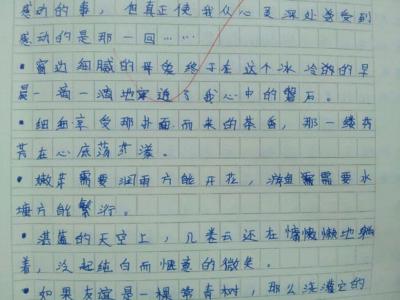 感动的事，但真正使我从心灵深处感受到
感动的是那一回……
·窗边细腻的母爱终于在这个冰冷的早
晨一滴一滴地穿透了我心中的磐石。
·细细享受那扑面而来的茶香，那一缕芬
芳在心底荡开漾。
·嫩芽需要润雨方能开花，游鱼需要水
塘方能繁衍。
·湛蓝的天空上，几卷云还在慵懒地躺
着，泛起纯白而惬意的微笑。
·如果友谊是一棵常青树，那么浇灌它的